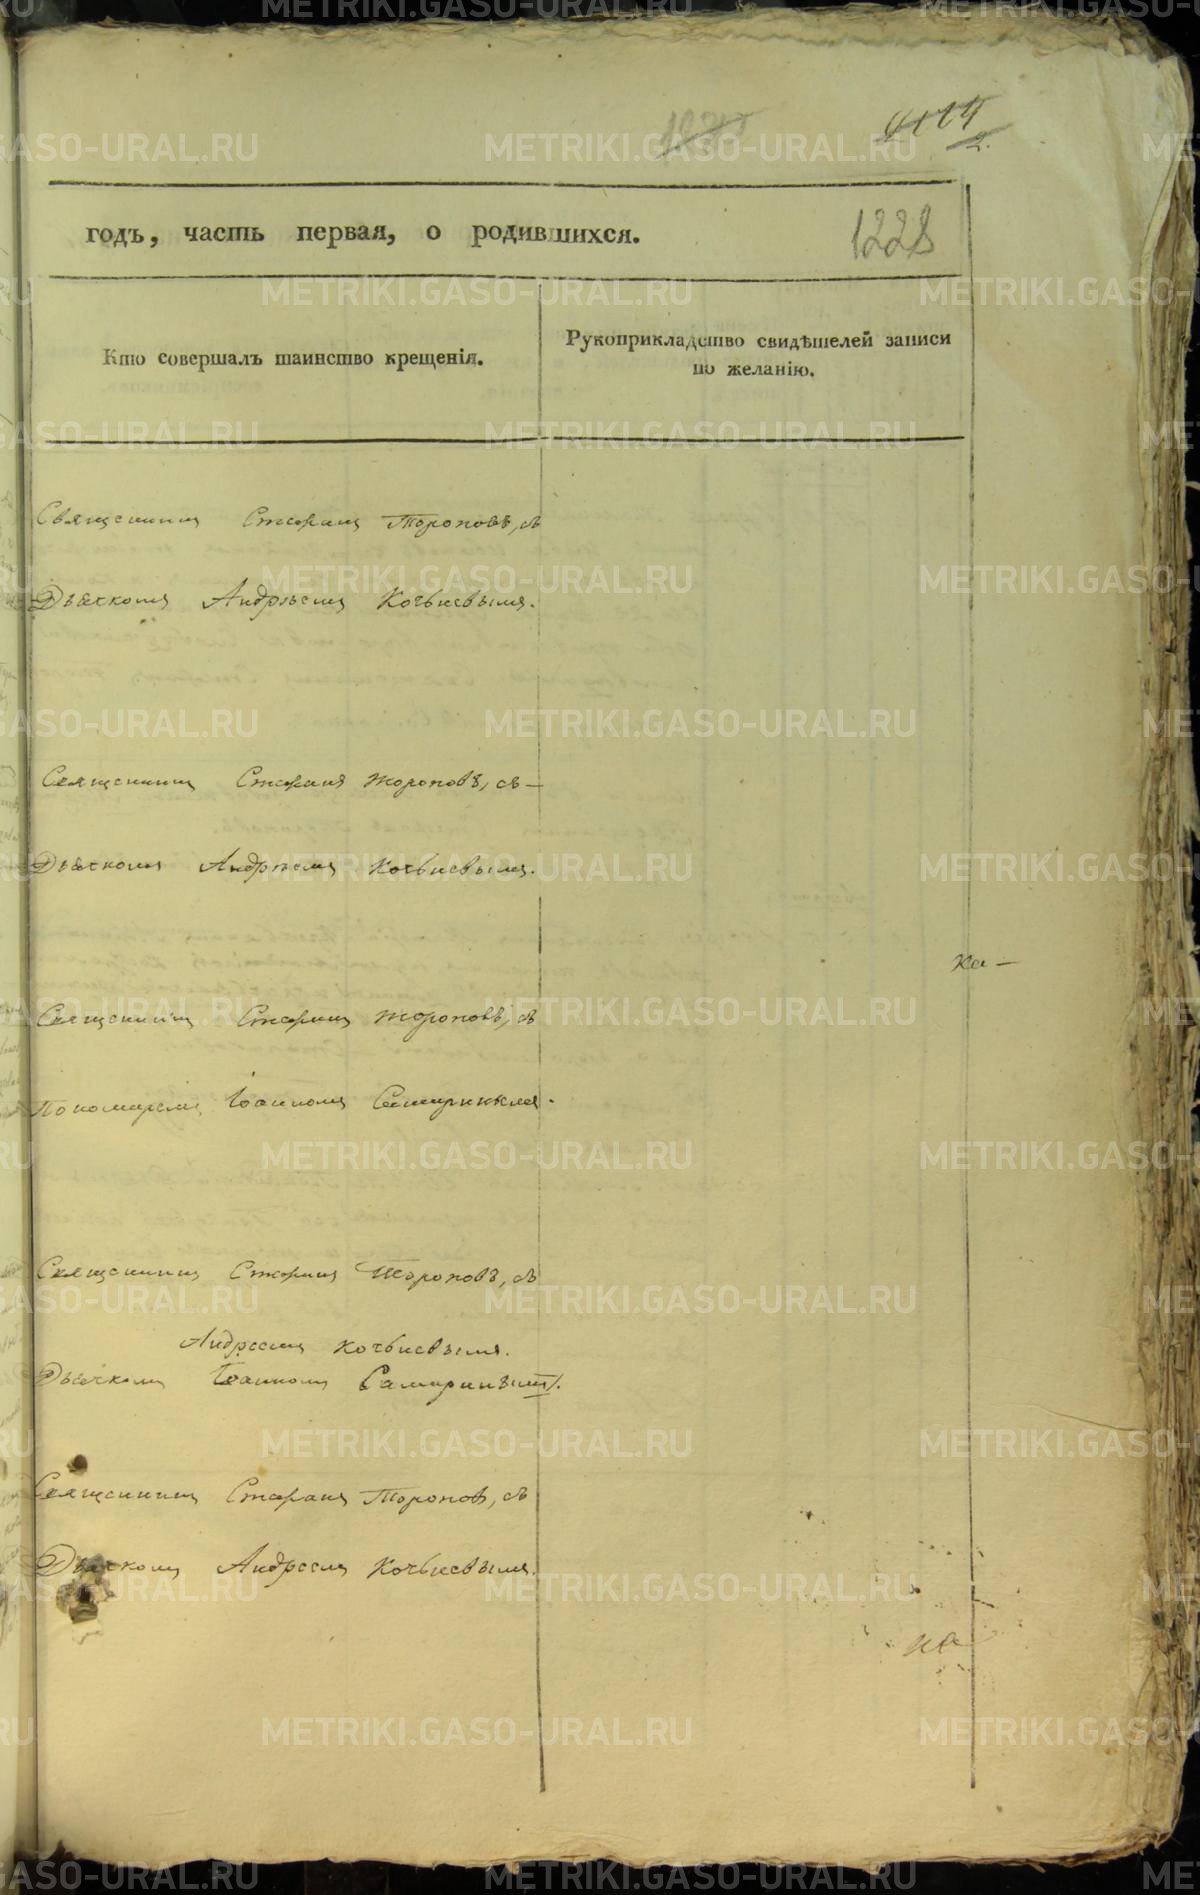 1228
годъ, часть первая, о родившихся.
Кто совершалъ таинство крещенія.
Рукоприкладство свидѣтелей записи
по желанію.
Священникъ Стефанъ Тороповъ, съ
Дьячкомъ Андреемъ
Священникъ Стефанъ Тороповъ, съ —
Дьячкомъ Андреемъ
Ка —
Священникъ Стефанъ Тороповъ, съ
Пономаремъ Іоанномъ Самаринымъ.
Священникъ Стефанъ Тороповъ, съ
Андреемъ
Дьячкомъ Іоанномъ Самаринымъ.
Священникъ Стефанъ Тороповъ, съ
Дьячкомъ Андреемъ
METRIKI.GASO-URAL.RU